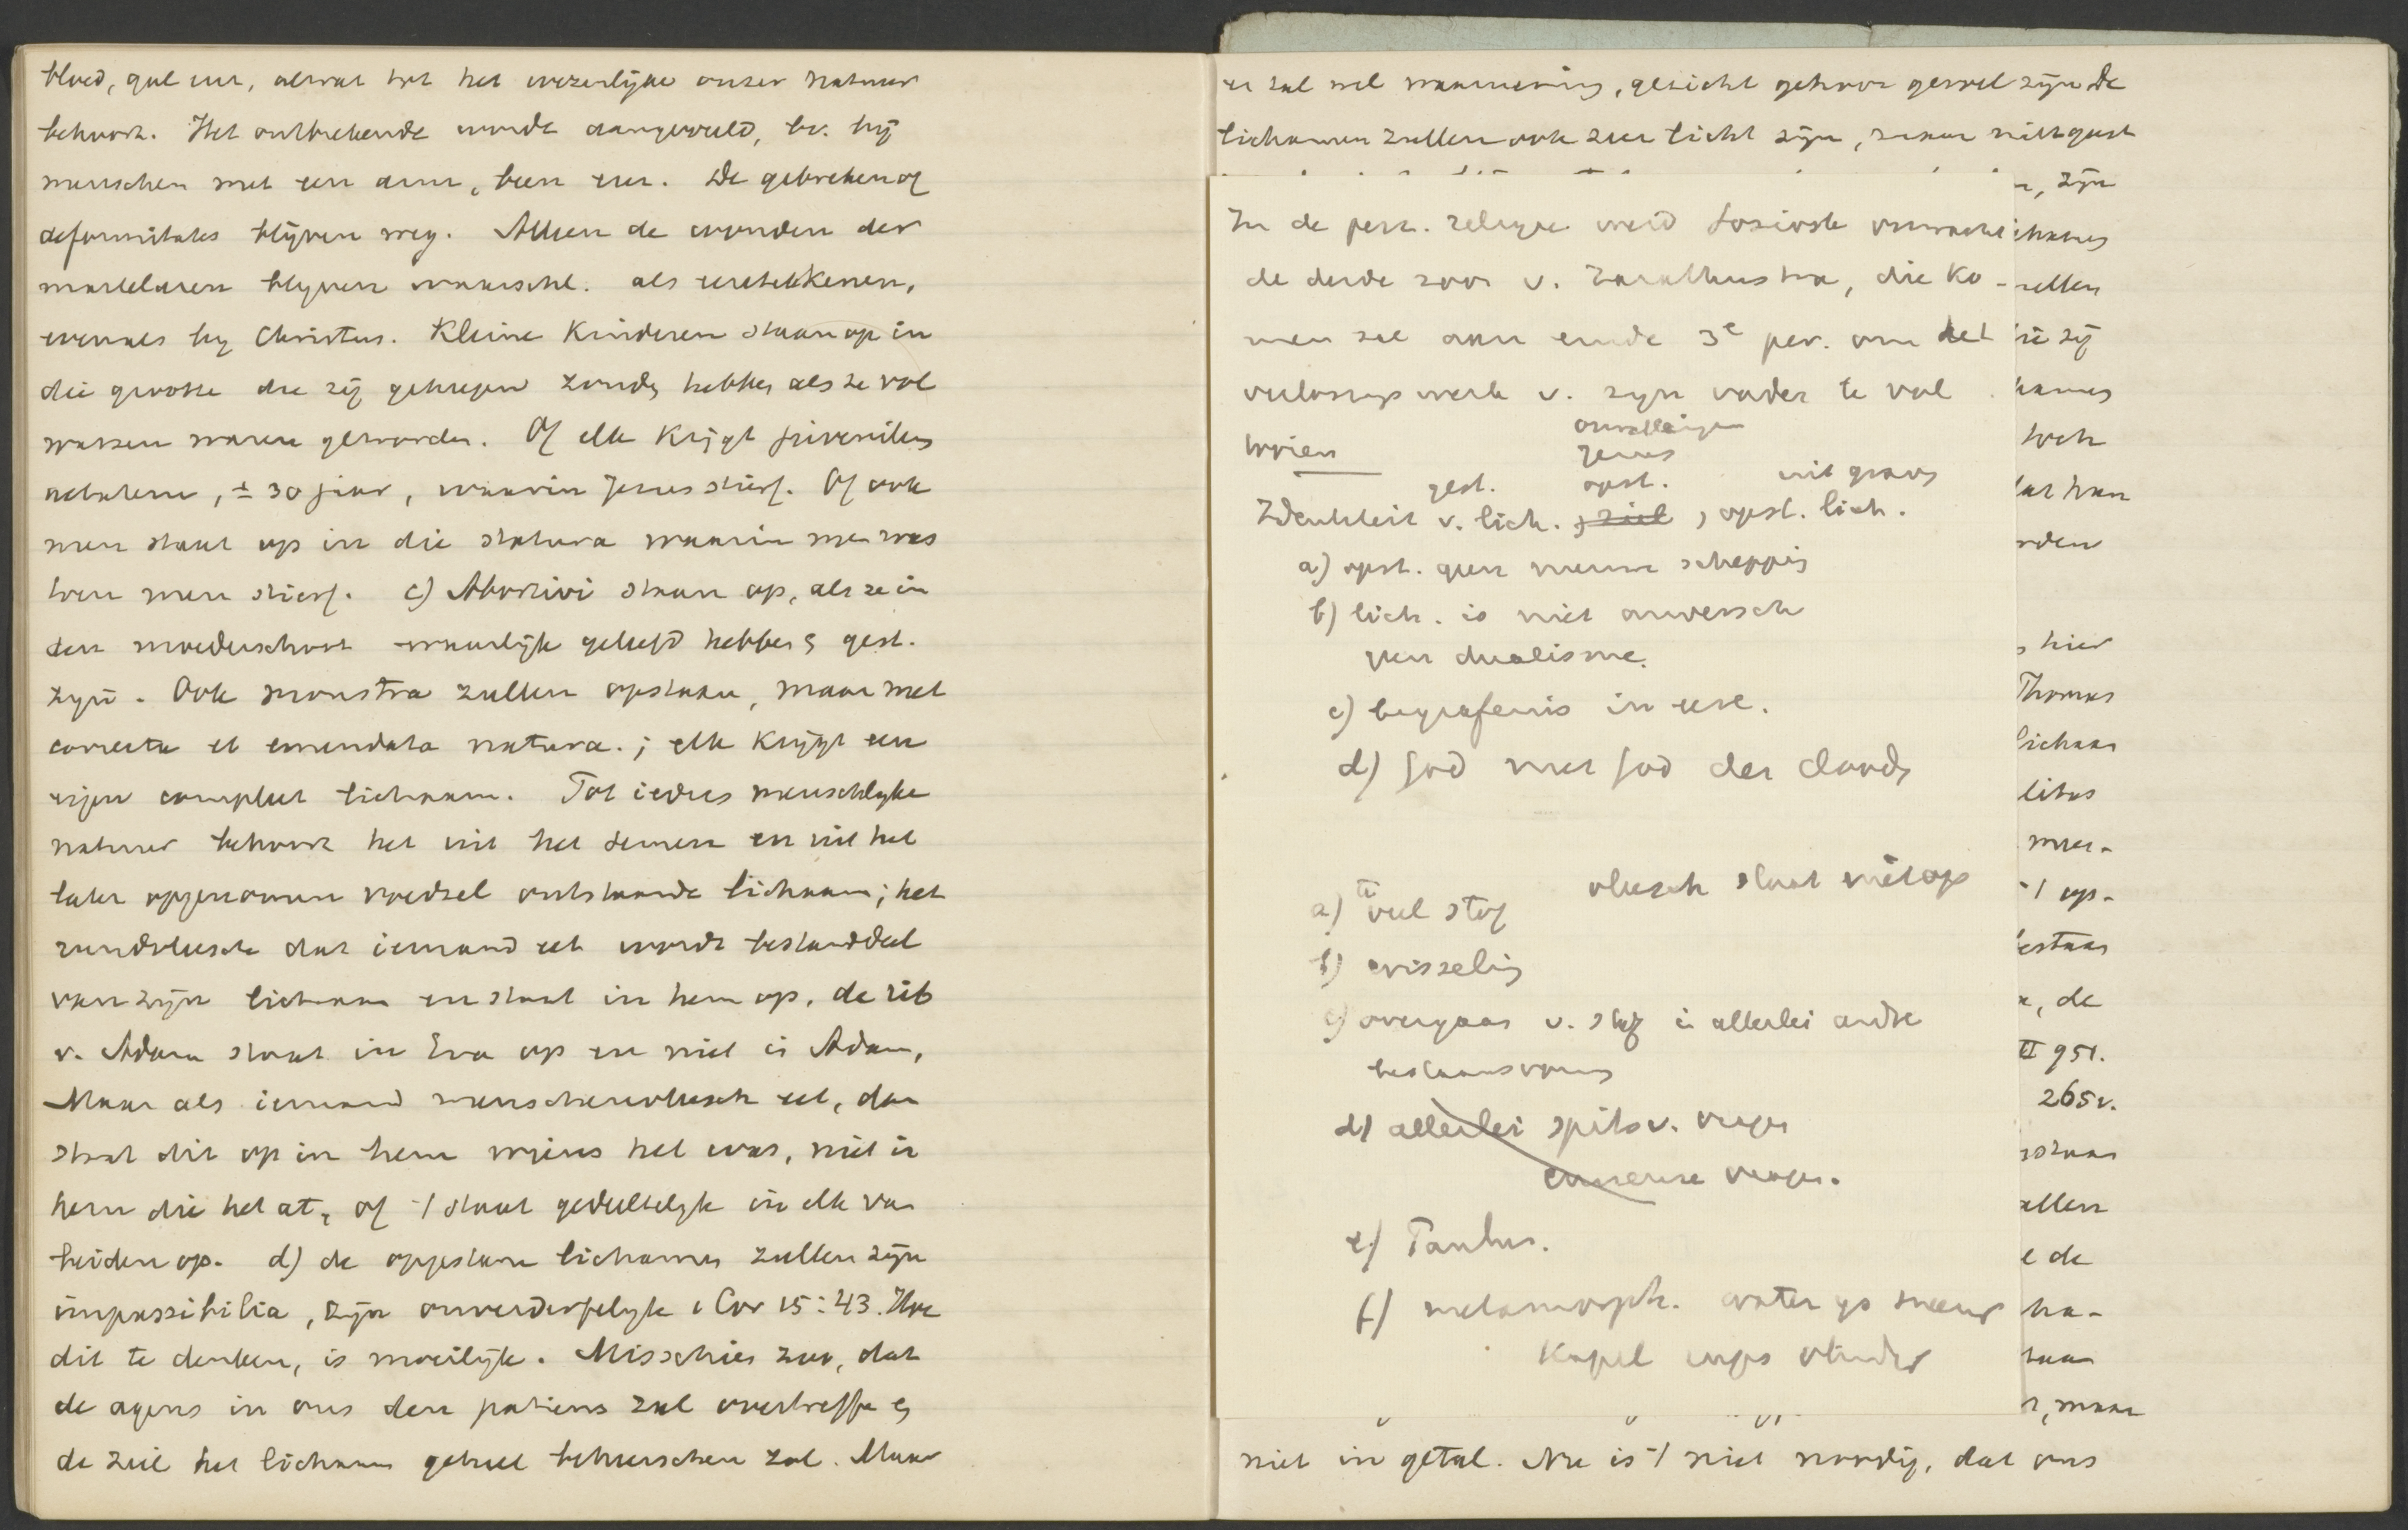 bloed, gal enz., alwat tot het wezenlijke onzer natuur
behoort. Het ontbrekende wordt aangevuld, bv. bij
menschen met een arm, been enz. De gebreken of
deformitates blijven weg. Alleen de wonden der
martelaren blijven waarschl. als eereteekenen,
evenals bij Christus. Kleine Kinderen staan op in
die grootte die zij gekregen zouden hebben als ze vol
wassen waren geworden. Of elk Krijgt juvenilem
aetatem, ± 30 jaar, waarin Jezus stierf. Of ook
men staat op in die statura waarin men was
toen men stierf. c) Abortivi staan op, als ze in
den moederschoot waarlijk geleefd hebben en gest.
zijn. Ook monstra zullen opstaan, maar met
correcta et emendata natura.; elk Krijgt een
eigen compleet lichaam. Tot iedres menschlijke
natuur behoort het uit het semen en uit het
later opgenomen voedsel ontstaande lichaam; het
rundvleesch dat iemand eet wordt bestanddeel
van zijn lichaam en staat in hem op, de rib
v. Adam staat in Eva op en niet in Adam,
Maar als iemand menschenvleesch eet, dan
staat dit op in hem wiens het was, niet in
hem die het at, of 't staat gedeeltelijk in elk van
beiden op. d) de opgestane lichamen zullen zijn
impassibilia, zijn onverderfelijk 1 Cor 15:43. Hoe
dit te denken, is moeilijk. Misschien zoo, dat
de agens in ons den patiens zal overtreffen en
de ziel het lichaam geheel beheerschen zal. Maar
er zal wel waarneming, gezicht gehoor gevoel zijn de
lichamen zullen ook zeer licht zijn,
In de perz. religie werd Sosiosh verwacht
de derde zoon v. Zarathustra, die Ko-
men zal aan einde 3e per. om het
verlossingswerk v. zijn vader te vol
tooien
Jezus
gest. opst. uit graven
Identiteit v. lich. ziel, opst. lich.
a) opst. geen nieuwe schepping
b) lich. is niet onwersch
geen dualisme.
c) begrafenis in eere.
d) God niet God der dooden
vleesch staat niet op
a) te veel stof
b) wisseling
c) overgaan v. stof in allerlei andre
bestaansvorm
d) allerlei spitsv. vragen
curieuse vragen.
e) Paulus.
f) metamorph. water ijs sneeuw
Kapel rups vlinder
n, zijn
ellen
die zij
hames
toch
rden
hier
Thomas
lichaam
litas
mee-
't op-
estaan
n, de
II 951.
265v.
staan
allen
e de
ha-
r, maar
niet in getal. Nu is 't niet noodig, dat ons